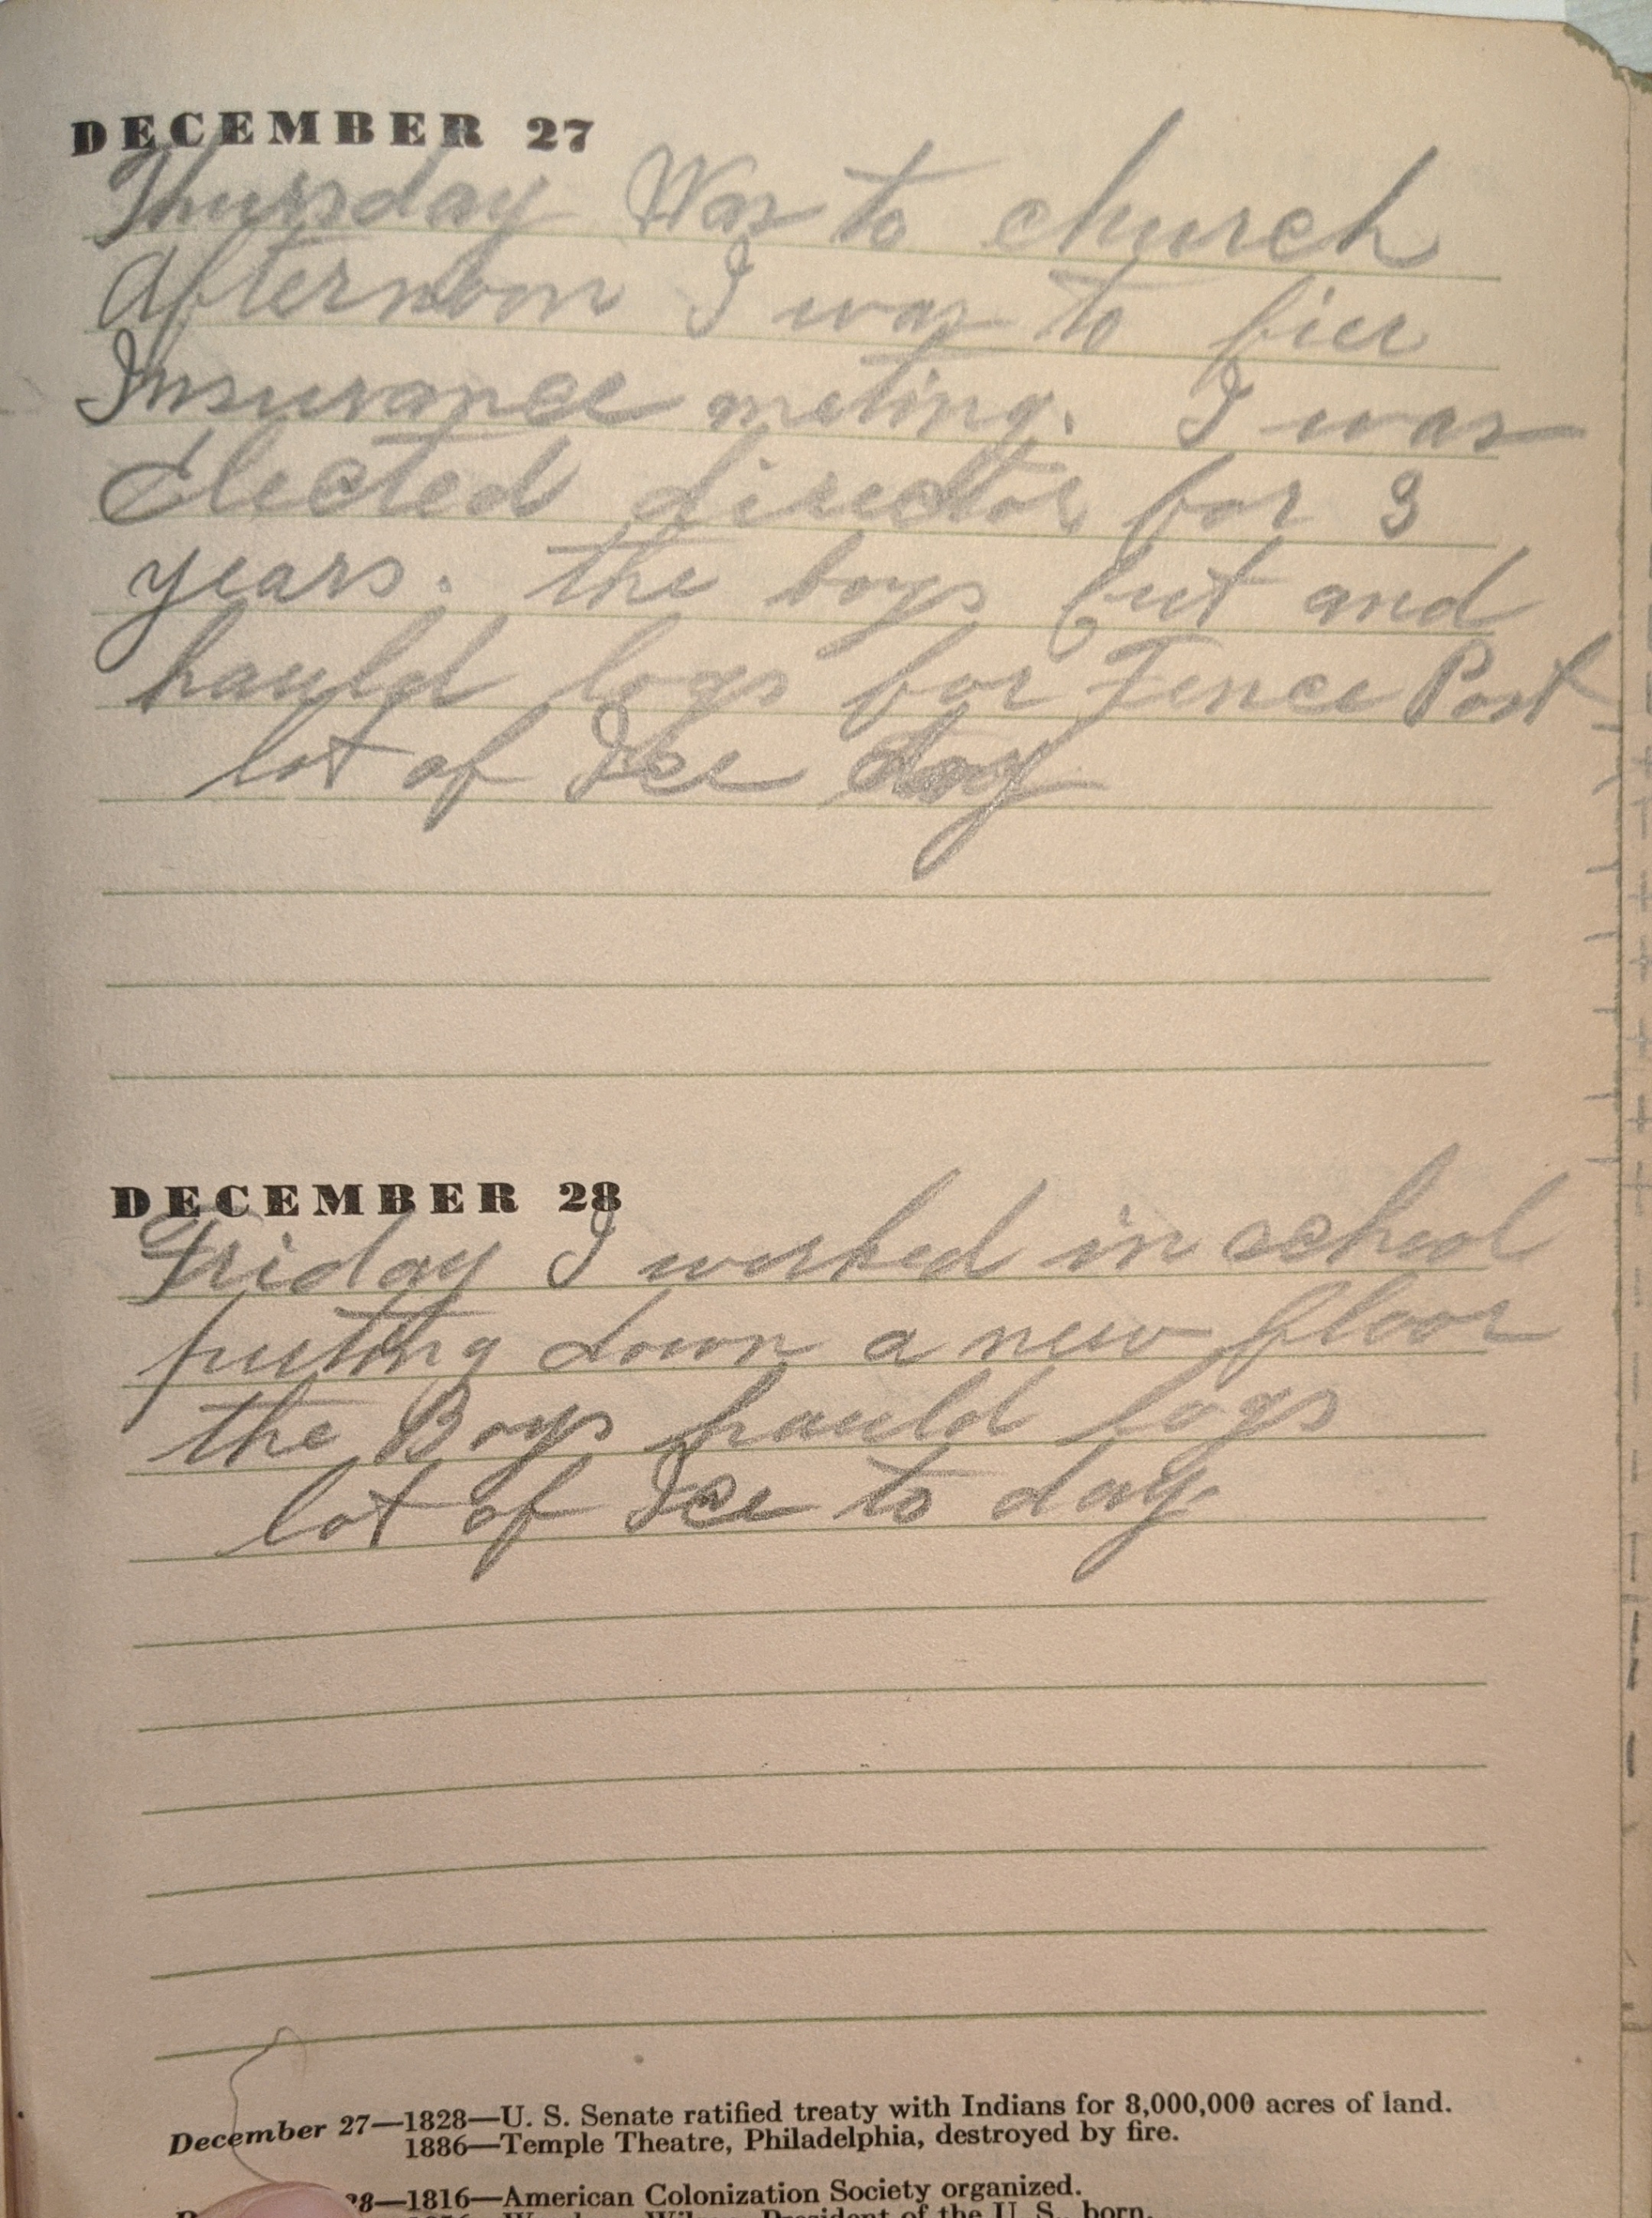 DECEMBER 27
Thursday Was to church
Afternoon I was to fier
Insurance meting. I was
Elected director for 3
years. the boys cut and
hauld logs for Fence Post
lot of Ice day
DECEMBER 28
Friday I worked in school
putting down a new floor
the Boys hauld logs
lot of Ice to day
December 27—1828—U. S. Senate ratified treaty with Indians for 8,000,000 acres of land.
1886—Temple Theatre, Philadelphia, destroyed by fire.
28—1816—American Colonization Society organized.
President of the U. S., born.